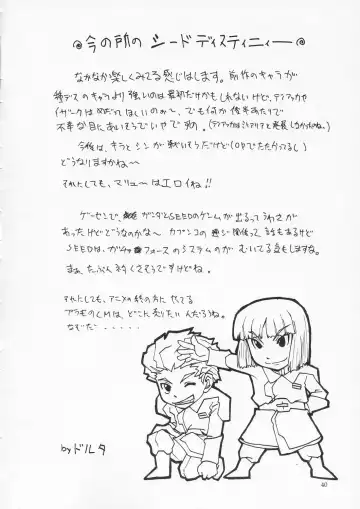 @今の所の シードディスティニィー@
なかなか楽しくみてる感じはします。前作のキャラが
種デスのキャラより強いのは最初だけかもしれないけど、ディアッカや
イザークは めだってほしいのぉ〜、でも何か後半あたりで
不幸な目にあいそうでいやですのぅ。(ディアッカはミリアリアと
今後は、キラとシンが戦いそうだけど(OPでたたかってるし)
どうなりますかね〜
それにしても、マリューはエロイね!!
ゲーセンで、ガンダSEEDのゲームが出るってうわさが
あったけどどうなのかな〜 カプンコの
SEEDは、ガチャフォースのシステムのが むいてる気もしますね。
まぁ、たぶん
それにしても、アニメの終の方に
プラモのCMは、どこに売りたいんだろうね。
なぞだ・・・・・
by ドルタ
40